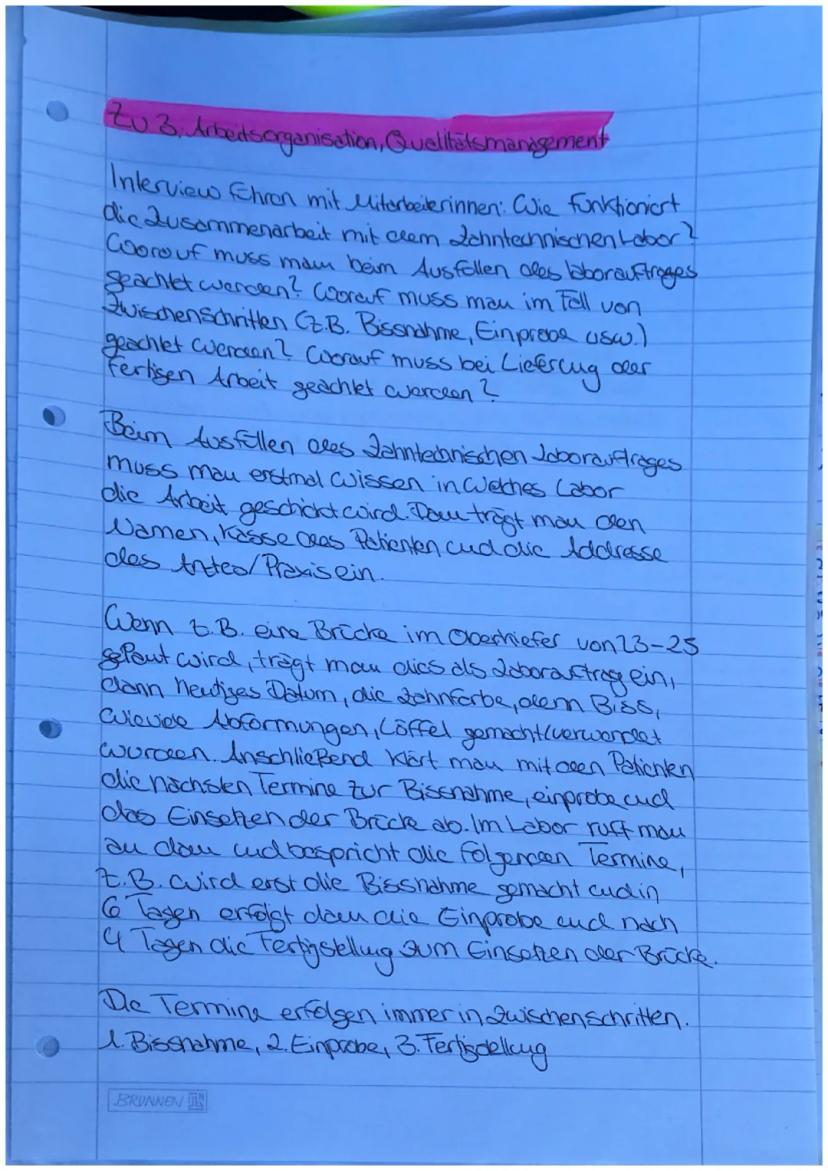 Zu 3. Arbeitsorganisation, Qualitätsmanagement
Interview führen mit Mitarbeiterinnen: Wie funktioniert
die Zusammenarbeit mit dem Zahntechnischen Labor?
Worauf muss man beim Ausfüllen des Laborauftrages
geachtet werden? Worauf muss man im Fall von
Zwischenschritten (z.B. Bissnahme, Einprobe usw.)
geachtet werden? Worauf muss bei Lieferung der
fertigen Arbeit geachtet werden?
Beim Ausfüllen des Zahntechnischen Laborauftrages
muss man erstmal wissen in welches Labor
die Arbeit geschickt wird. Dann trägt man den
Namen, Kasse des Patienten und die Addresse
des Arztes/Praxis ein.
Wenn z.B. eine Brücke im Oberkiefer von 23-25
gebaut wird, trägt man dies als Laborauftrag ein,
dann heutiges Datum, die Zahnfarbe, dem Biss,
wieviele Abformungen, Löffel gemacht/verwendet
wurden. Anschließend klärt man mit den Patienten
die nächsten Termine zur Bissnahme, einprobe und
das Einsetzen der Brücke ab. Im Labor ruft man
an dann und bespricht die folgenden Termine,
z.B. wird erst die Bissnahme gemacht und in
6 Tagen erfolgt dann die Einprobe und nach
4 Tagen die Fertigstellung zum Einsetzen der Brücke.
Die Termine erfolgen immer in Zwischenschritten.
1. Bissnahme, 2. Einprobe, 3. Fertigstellung
BRUNNEN